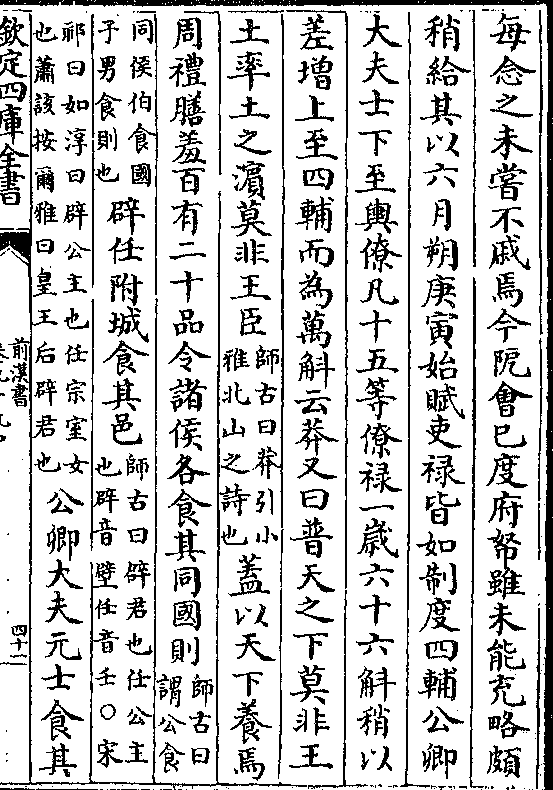 每念之未嘗不戚焉今阨會已度府帑雖未能充略頗
稍給其以六月朔庚寅始賦吏祿皆如制度四輔公卿
大夫士下至輿僚凡十五等僚祿一歲六十六斛稍以
差增上至四輔而為萬斛云莽又曰普天之下莫非王
土率土之濵莫非王臣師古曰莽引小雅北山之詩也蓋以天下養焉
周禮膳羞百有二十品今諸侯各食其同國則師古曰謂公食
同侯伯食國子男食則也辟任附城食其邑師古曰辟君也任公主也辟音壁任音壬○宋
祁曰如淳曰辟公主也任宗室女也蕭該按爾雅曰皇王后辟君也公卿大夫元士食其
欽定四庫全書
前漢書
四十一